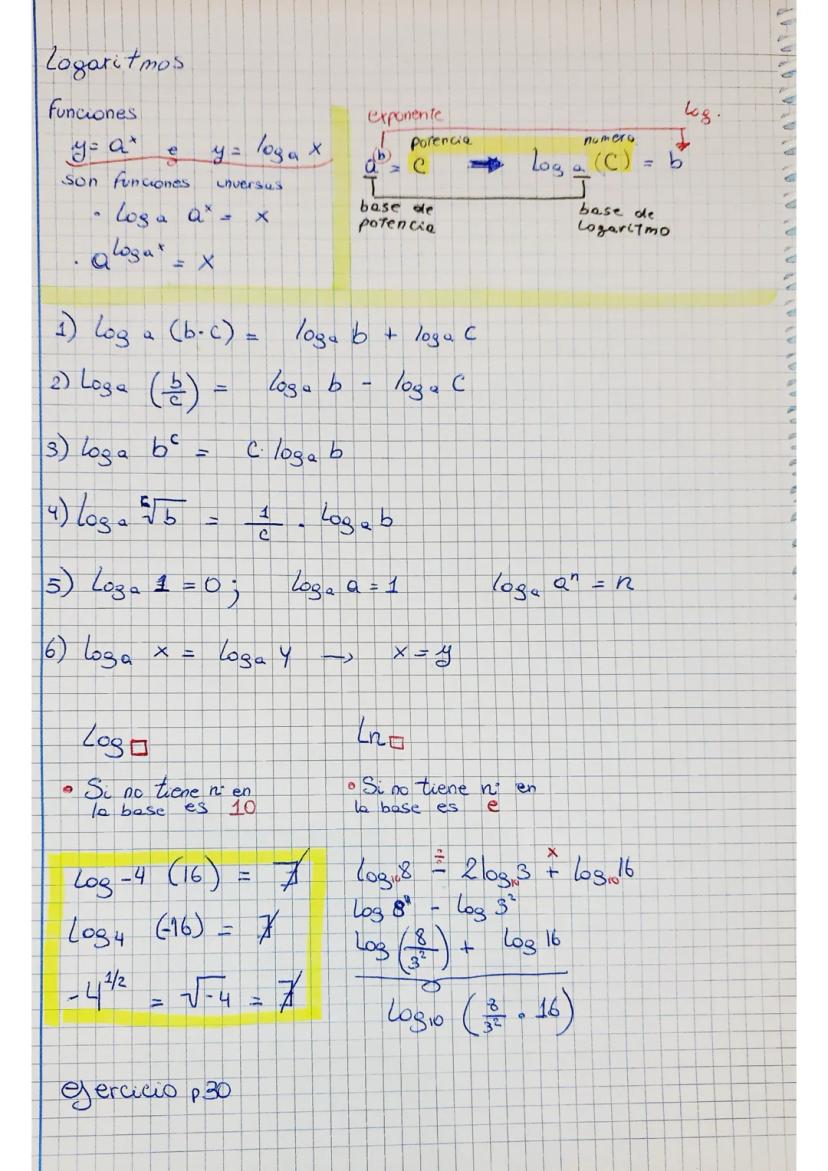 Logaritmos
funciones
y = aˣ e y = logₐ x
son funciones inversas
• logₐ aˣ = x
• a^(logₐ x) = x
exponente log.
potencia numero
a^b = c → logₐ (c) = b
base de potencia
base de logaritmo
1) logₐ (b·c) = logₐ b + logₐ c
2) logₐ (b/c) = logₐ b - logₐ c
3) logₐ b^c = c · logₐ b
4) logₐ ᶜ√b = 1/c · logₐ b
5) logₐ 1 = 0; logₐ a = 1 logₐ aⁿ = n
6) logₐ x = logₐ y → x = y
Log □
• Si no tiene nº en
la base es 10
Ln □
• Si no tiene nº en
la base es e
log₋₄ (16) = ∄
log₄ (-16) = ∄
-4^(1/2) = √-4 = ∄
÷ x
log₁₀ 8 - 2 log₁₀ 3 + log₁₀ 16
log 8 - log 3²
log (8/3²) + log 16
log₁₀ (8/3² · 16)
ejercicio p30